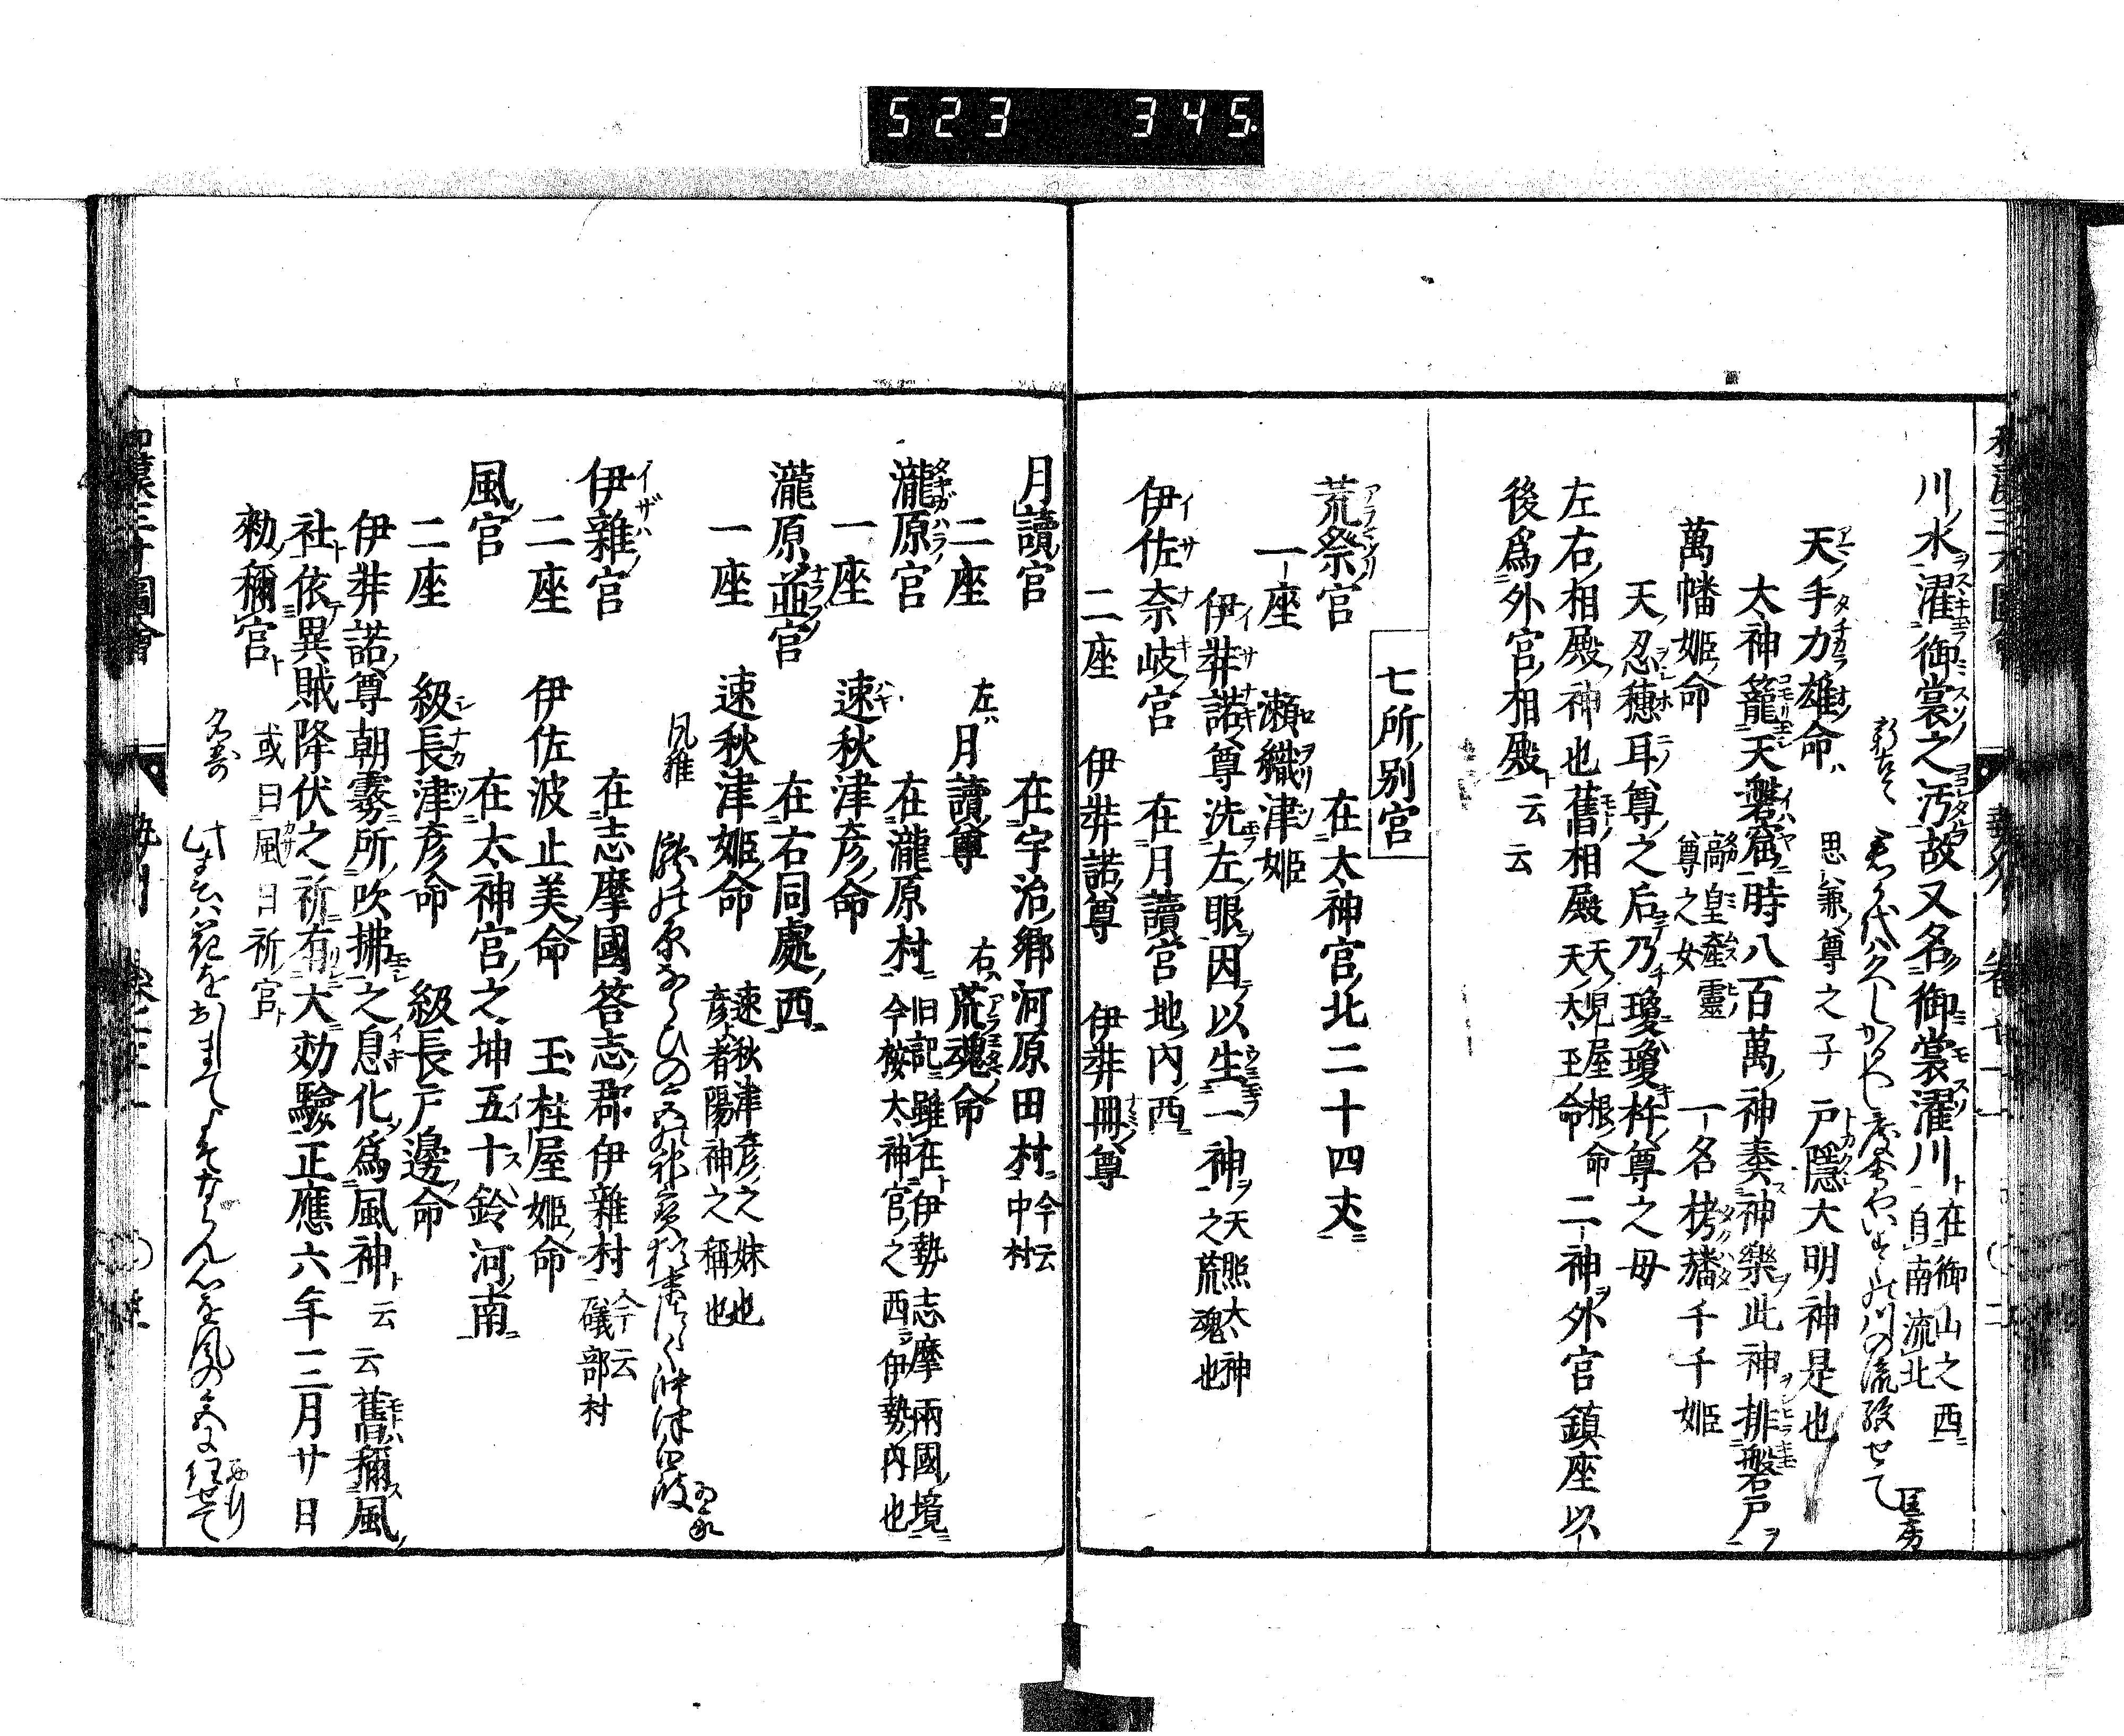 523 345
川水濯御裳之汚故又名御裳濯川 在御山之西自南流北
新古今 君が代は久しかるべし度會やいすゞの川の流絶せで 匡房
天手力雄命 思兼尊之子 戸隱大明神是也
太神籠天磐窟時八百萬神奏神樂此神排磐戸
萬幡姫命 高皇產靈尊之女 一名栲幡千千姫
天忍穗耳尊之后乃瓊瓊杵尊之母
左右相殿神也舊相殿 天児屋根命 天太玉命 二神外宮鎮座以
後爲外宮相殿云云
七所別宮
荒祭宮 在太神宮北二十四丈
一座 瀬織津姫
伊弉諾尊洗左眼因以生一神 天照太神之荒魂也
伊佐奈岐宮 在月讀宮地内西
二座 伊弉諾尊 伊弉冊尊
月讀宮 在宇治郷河原田村 今云中村
二座 左月讀尊 右荒魂命
瀧原宮 在瀧原村 旧記雖在伊勢志摩兩國境今按太神宮之西伊勢内也
一座 速秋津彦命
瀧原並宮 在右同處西
一座 速秋津姫命 速秋津彦之妹也彦者陽神之稱也
風雅
伊雜宮 在志摩國答志郡伊雜村 今云磯部村
二座 伊佐波止美命 玉柱屋姫命
風宮 在太神宮之坤五十鈴河南
二座 級長津彦命 級長戸邊命
伊弉諾尊朝霧所吹拂之息化爲風神云云舊稱風
社依異賊降伏之祈有大効驗正應六年三月廿日
勅稱宮 或曰風日祈宮
名寄